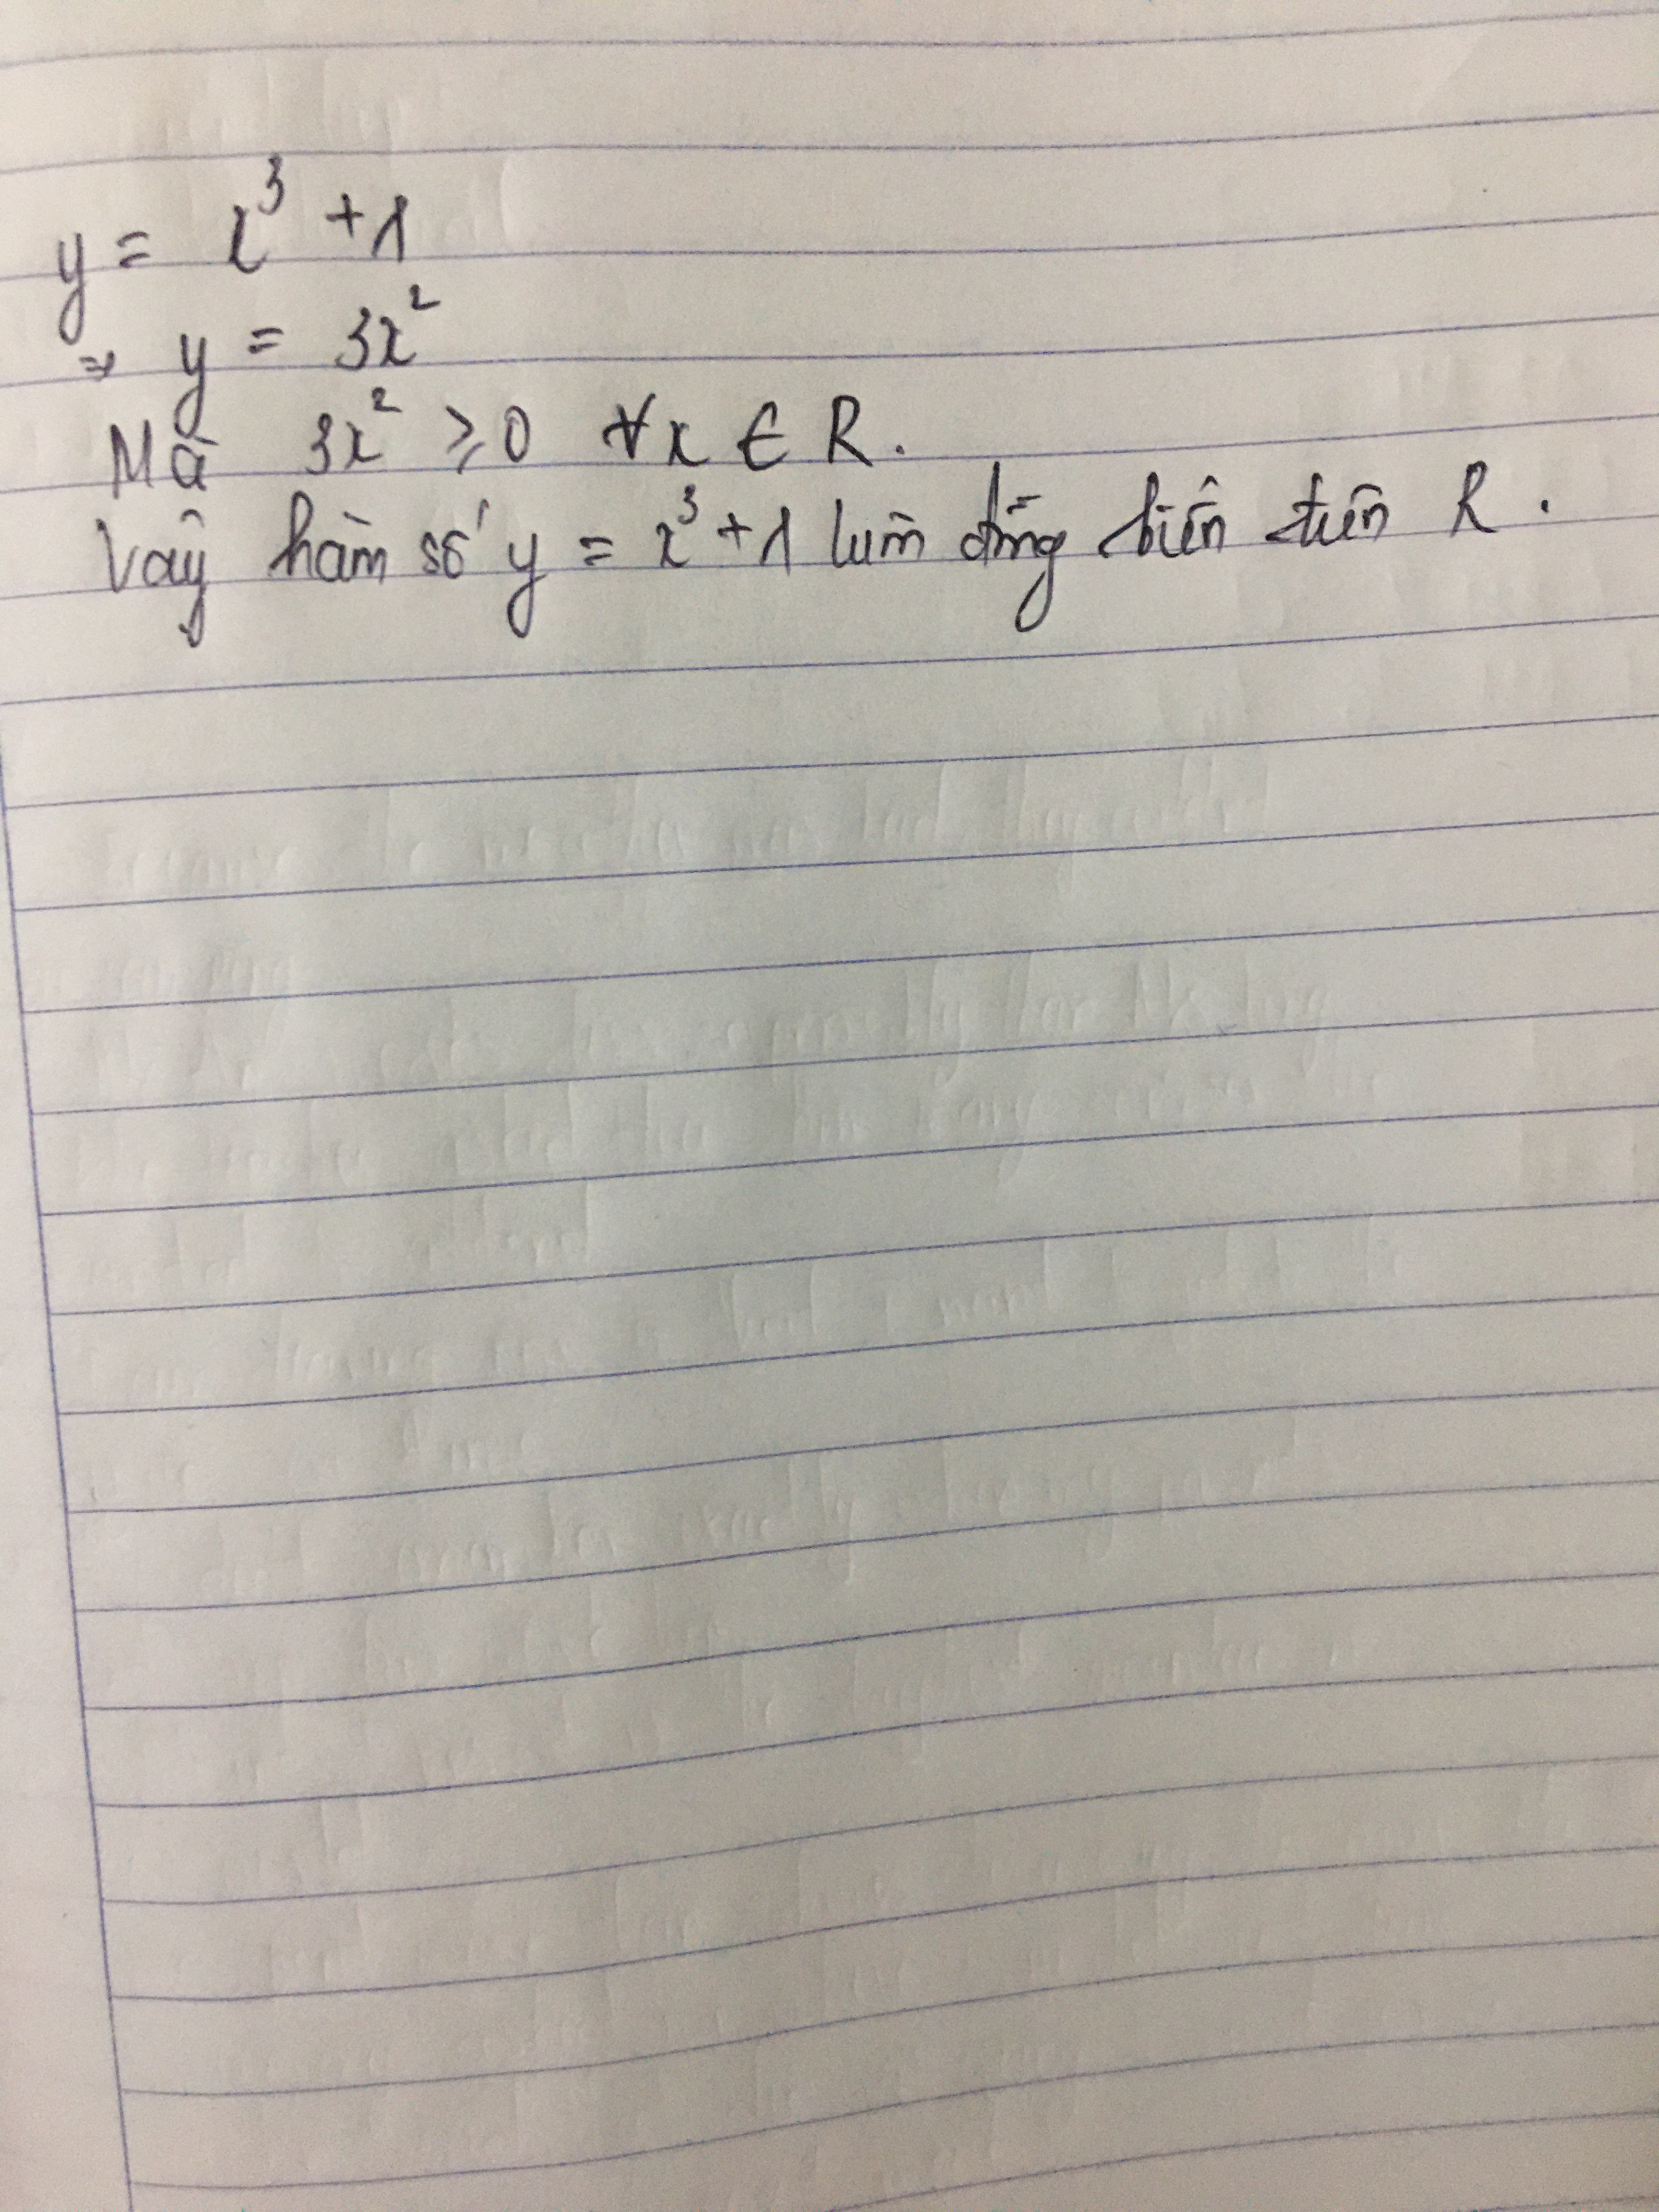 y = x³ + 1
⇒ y = 3x²
Mà 3x² ⩾ 0 ∀x ∈ R.
Vậy hàm số y = x³ + 1 luôn đồng biến trên R.